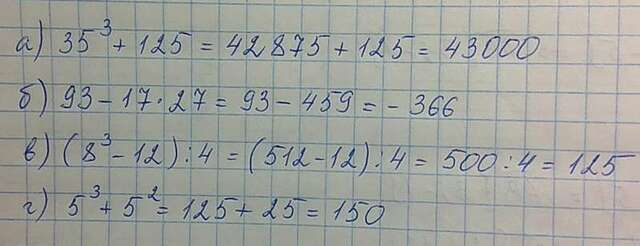 а) 35³ + 125 = 42875 + 125 = 43000
б) 93 - 17 · 27 = 93 - 459 = - 366
в) (8³ - 12) : 4 = (512 - 12) : 4 = 500 : 4 = 125
г) 5³ + 5² = 125 + 25 = 150